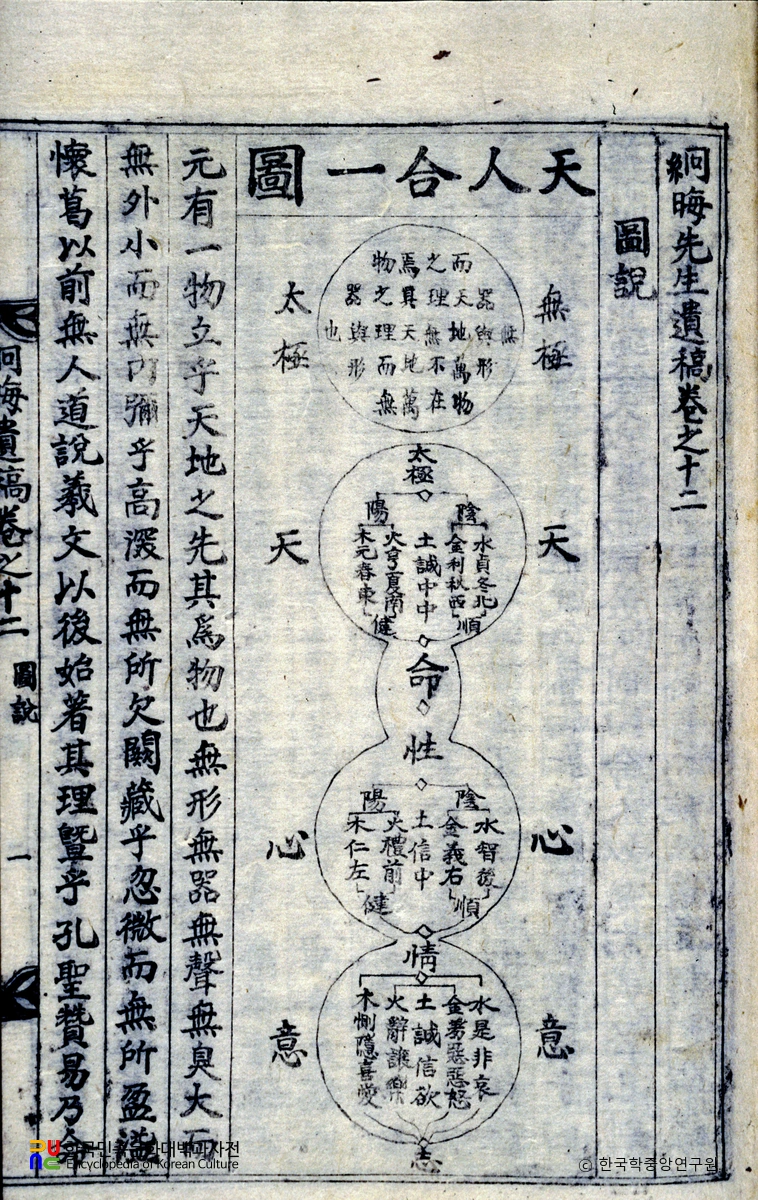 絅晦先生遺稿卷之十二
圖說
天人合一圖
無極
無
器與形
而天地萬物
之理無不在
焉具天地萬
物之理而無
器與形
也
太極
天
太極
陰
水貞冬北
金利秋西
順
土誠中中
陽
火亨夏南
木元春東
健
天
命
性
心
陰
水智後
金義右
順
土信中
陽
火禮前
木仁左
健
心
情
意
水是非哀
金羞惡惡怒
土誠信欲
火辭讓樂
木惻隱喜愛
意
志
元有一物立乎天地之先其爲物也無形無器無聲無臭大而
無外小而無內彌乎高深而無所欠闕藏乎忽微而無所盈溢
懷葛以前無人道說羲文以後始著其理曁乎孔聖贊易乃
絅晦遺稿卷之十二 圖說 一
한국민족문화대백과사전
Encyclopedia of Korean Culture
© 한국학중앙연구원